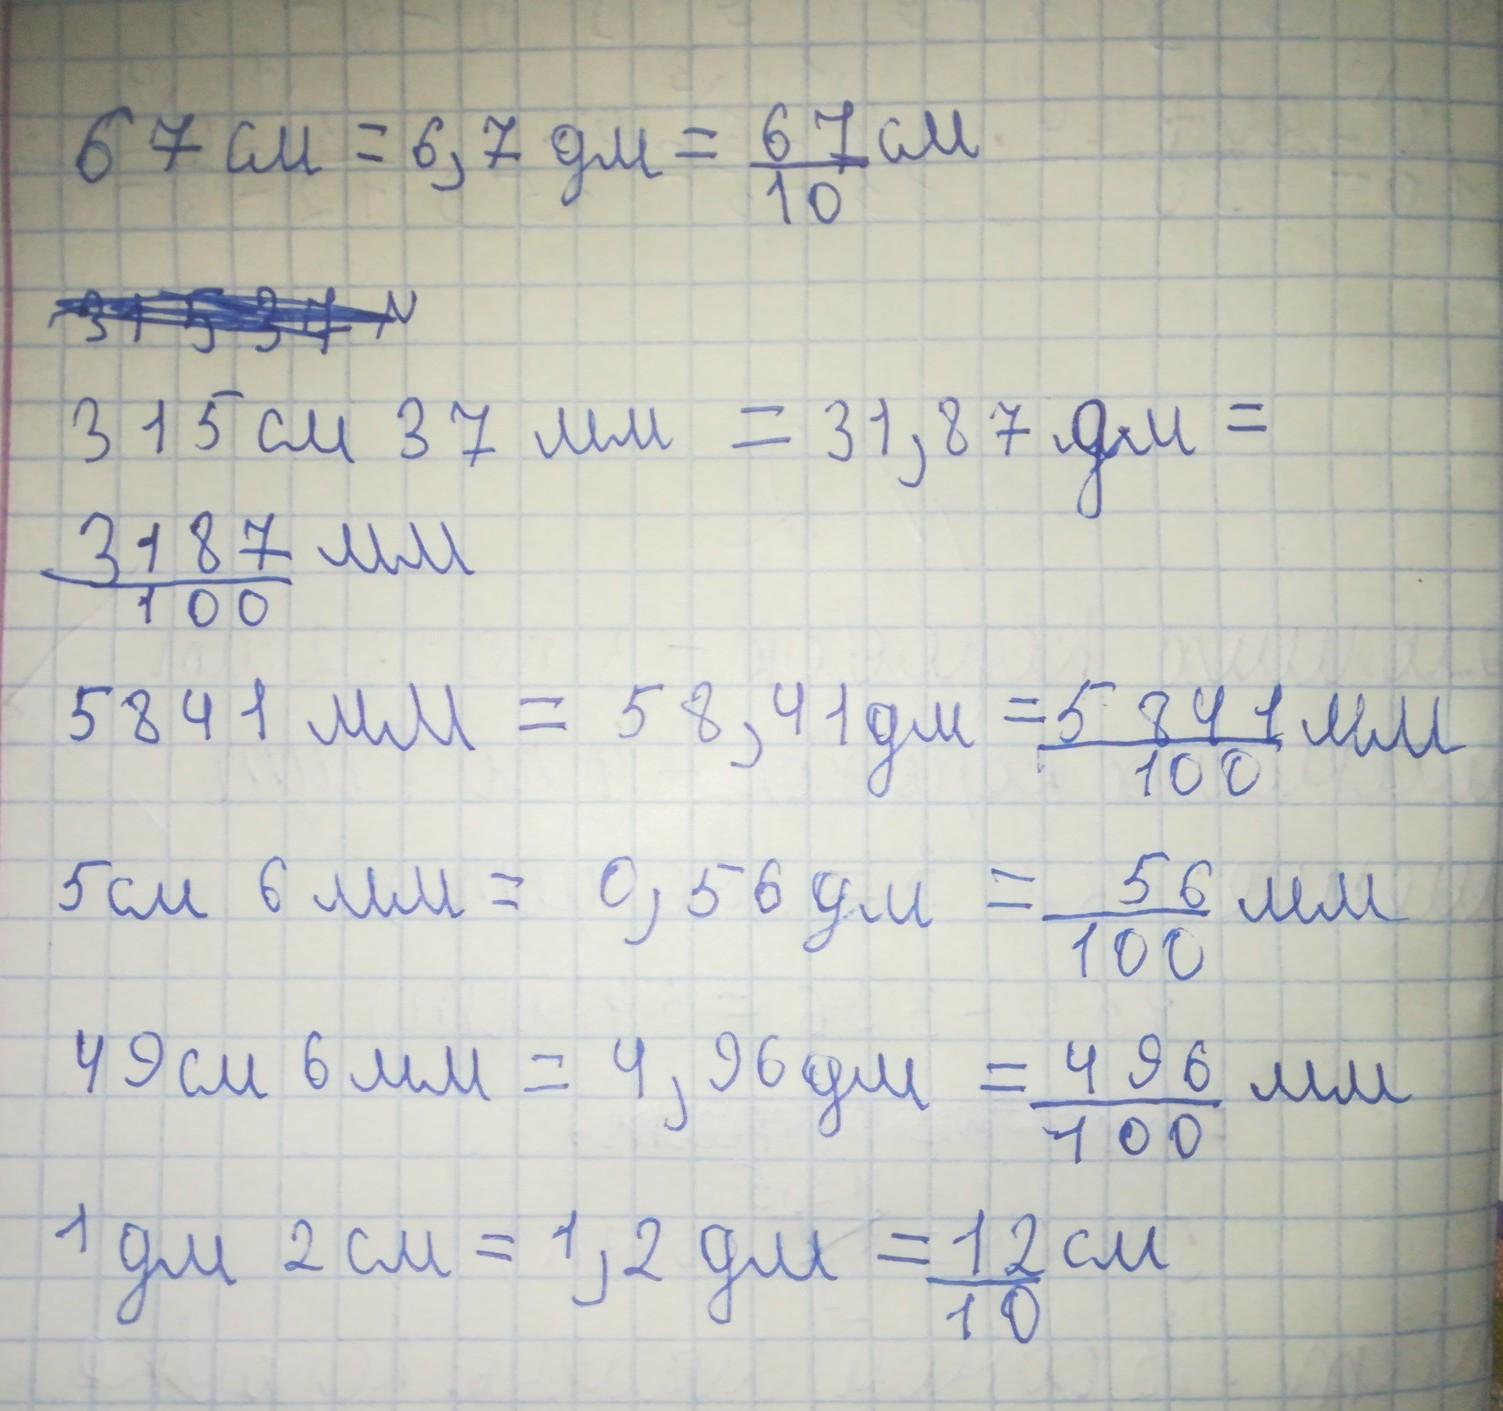 67 см = 6,7 дм = 67/10 см
315 37 м
315 см 37 мм = 31,87 дм =
3187/100 мм
5841 мм = 58,41 дм = 5841/100 мм
5 см 6 мм = 0,56 дм = 56/100 мм
49 см 6 мм = 4,96 дм = 496/100 мм
1 дм 2 см = 1,2 дм = 12/10 см